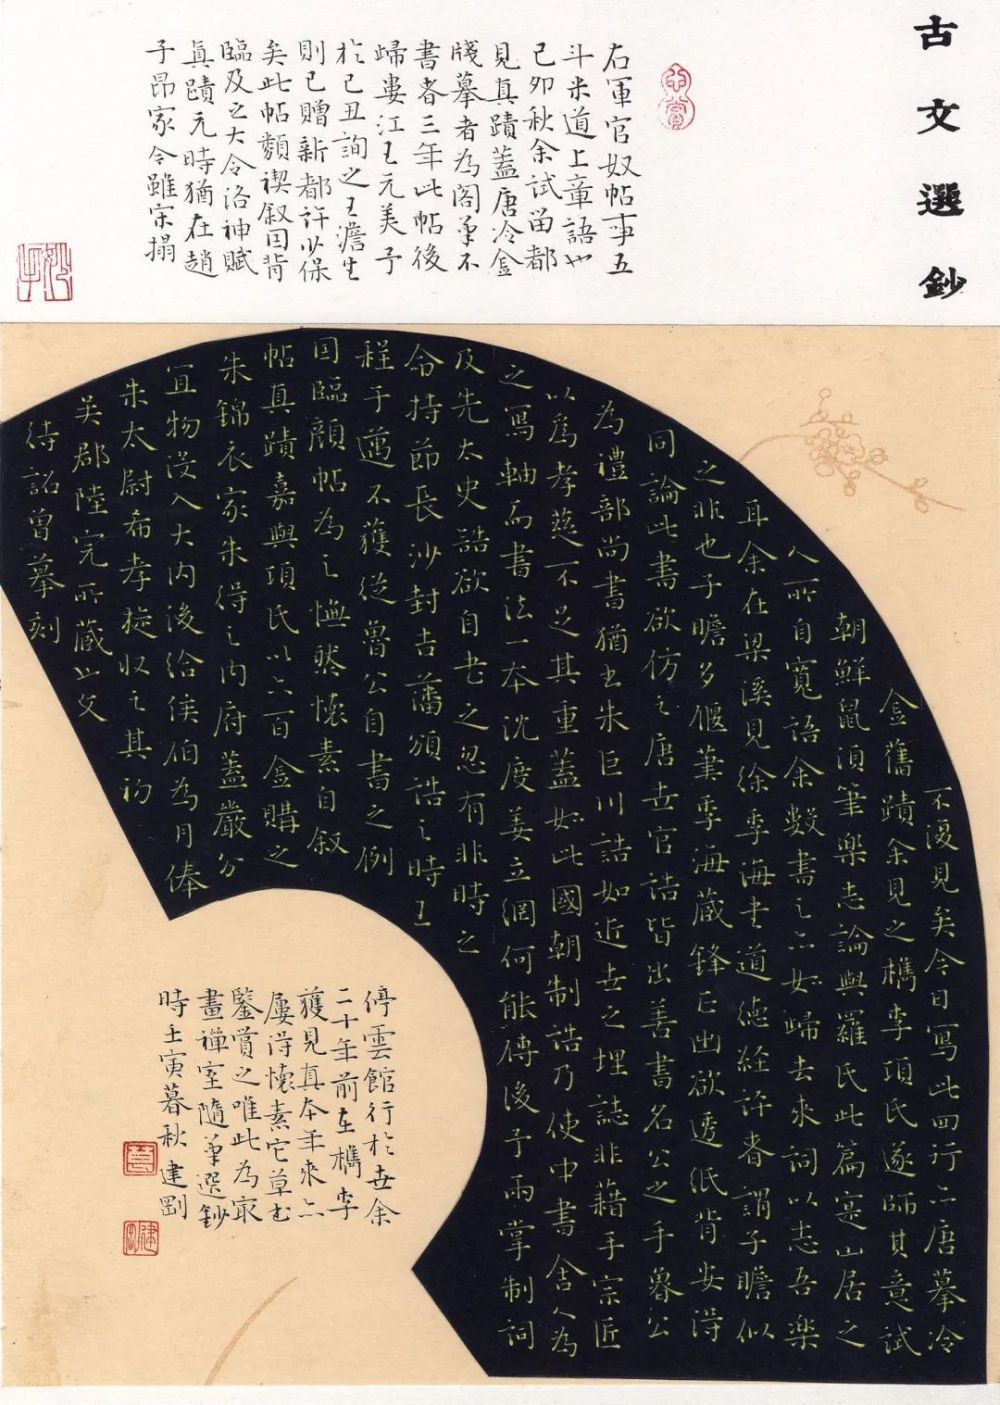 古文選鈔
右軍官奴帖事五
斗米道上章語也
己卯秋余試留都
見真蹟蓋唐冷金
牋摹者為閣筆不
書者三年此帖後
歸婁江王元美予
於己丑詢之王澹生
則已贈新都許少保
矣此帖類禊叙因背
臨及之大令洛神賦
真蹟元時猶在趙
子昂家今雖宋搨
不復見矣今日寫此四行亦唐摹冷
金舊蹟余見之檇李項氏遂師其意試
朝鮮鼠須筆樂志論與羅氏此篇寔山居之
人所自寬語余數書之亦如歸去來詞以志吾樂
耳余在梁溪見徐季海書道德經評者謂子瞻似
之非也子瞻多偃筆季海藏鋒正出欲透紙背安得
同論此書欲仿之唐世官誥皆出善書名公之手魯公
為禮部尚書猶書朱巨川誥如近世之埋誌非藉手宗匠
以為孝慈不足其重蓋如此國朝制誥乃使中書舍人為
之寫軸而書法一本沈度姜立綱何能傳後予兩掌制詞
及先太史誥欲自書之忽有非時之
命持節長沙封吉藩頒誥之時王
程于邁不獲從魯公自書之例
因臨顏帖為之憮然懷素自叙
帖真蹟嘉興項氏以六百金購之
朱錦衣家朱得之內府蓋嚴分
宜物沒入大內後給侯伯為月俸
朱太尉希孝旋收之其初
吳郡陸完所藏也文
待詔曾摹刻
停雲館行於世余
二十年前在檇李
獲見真本年來亦
屢得懷素它草書
鑒賞之唯此為最
畫禪室隨筆選鈔
時壬寅暮秋建劉